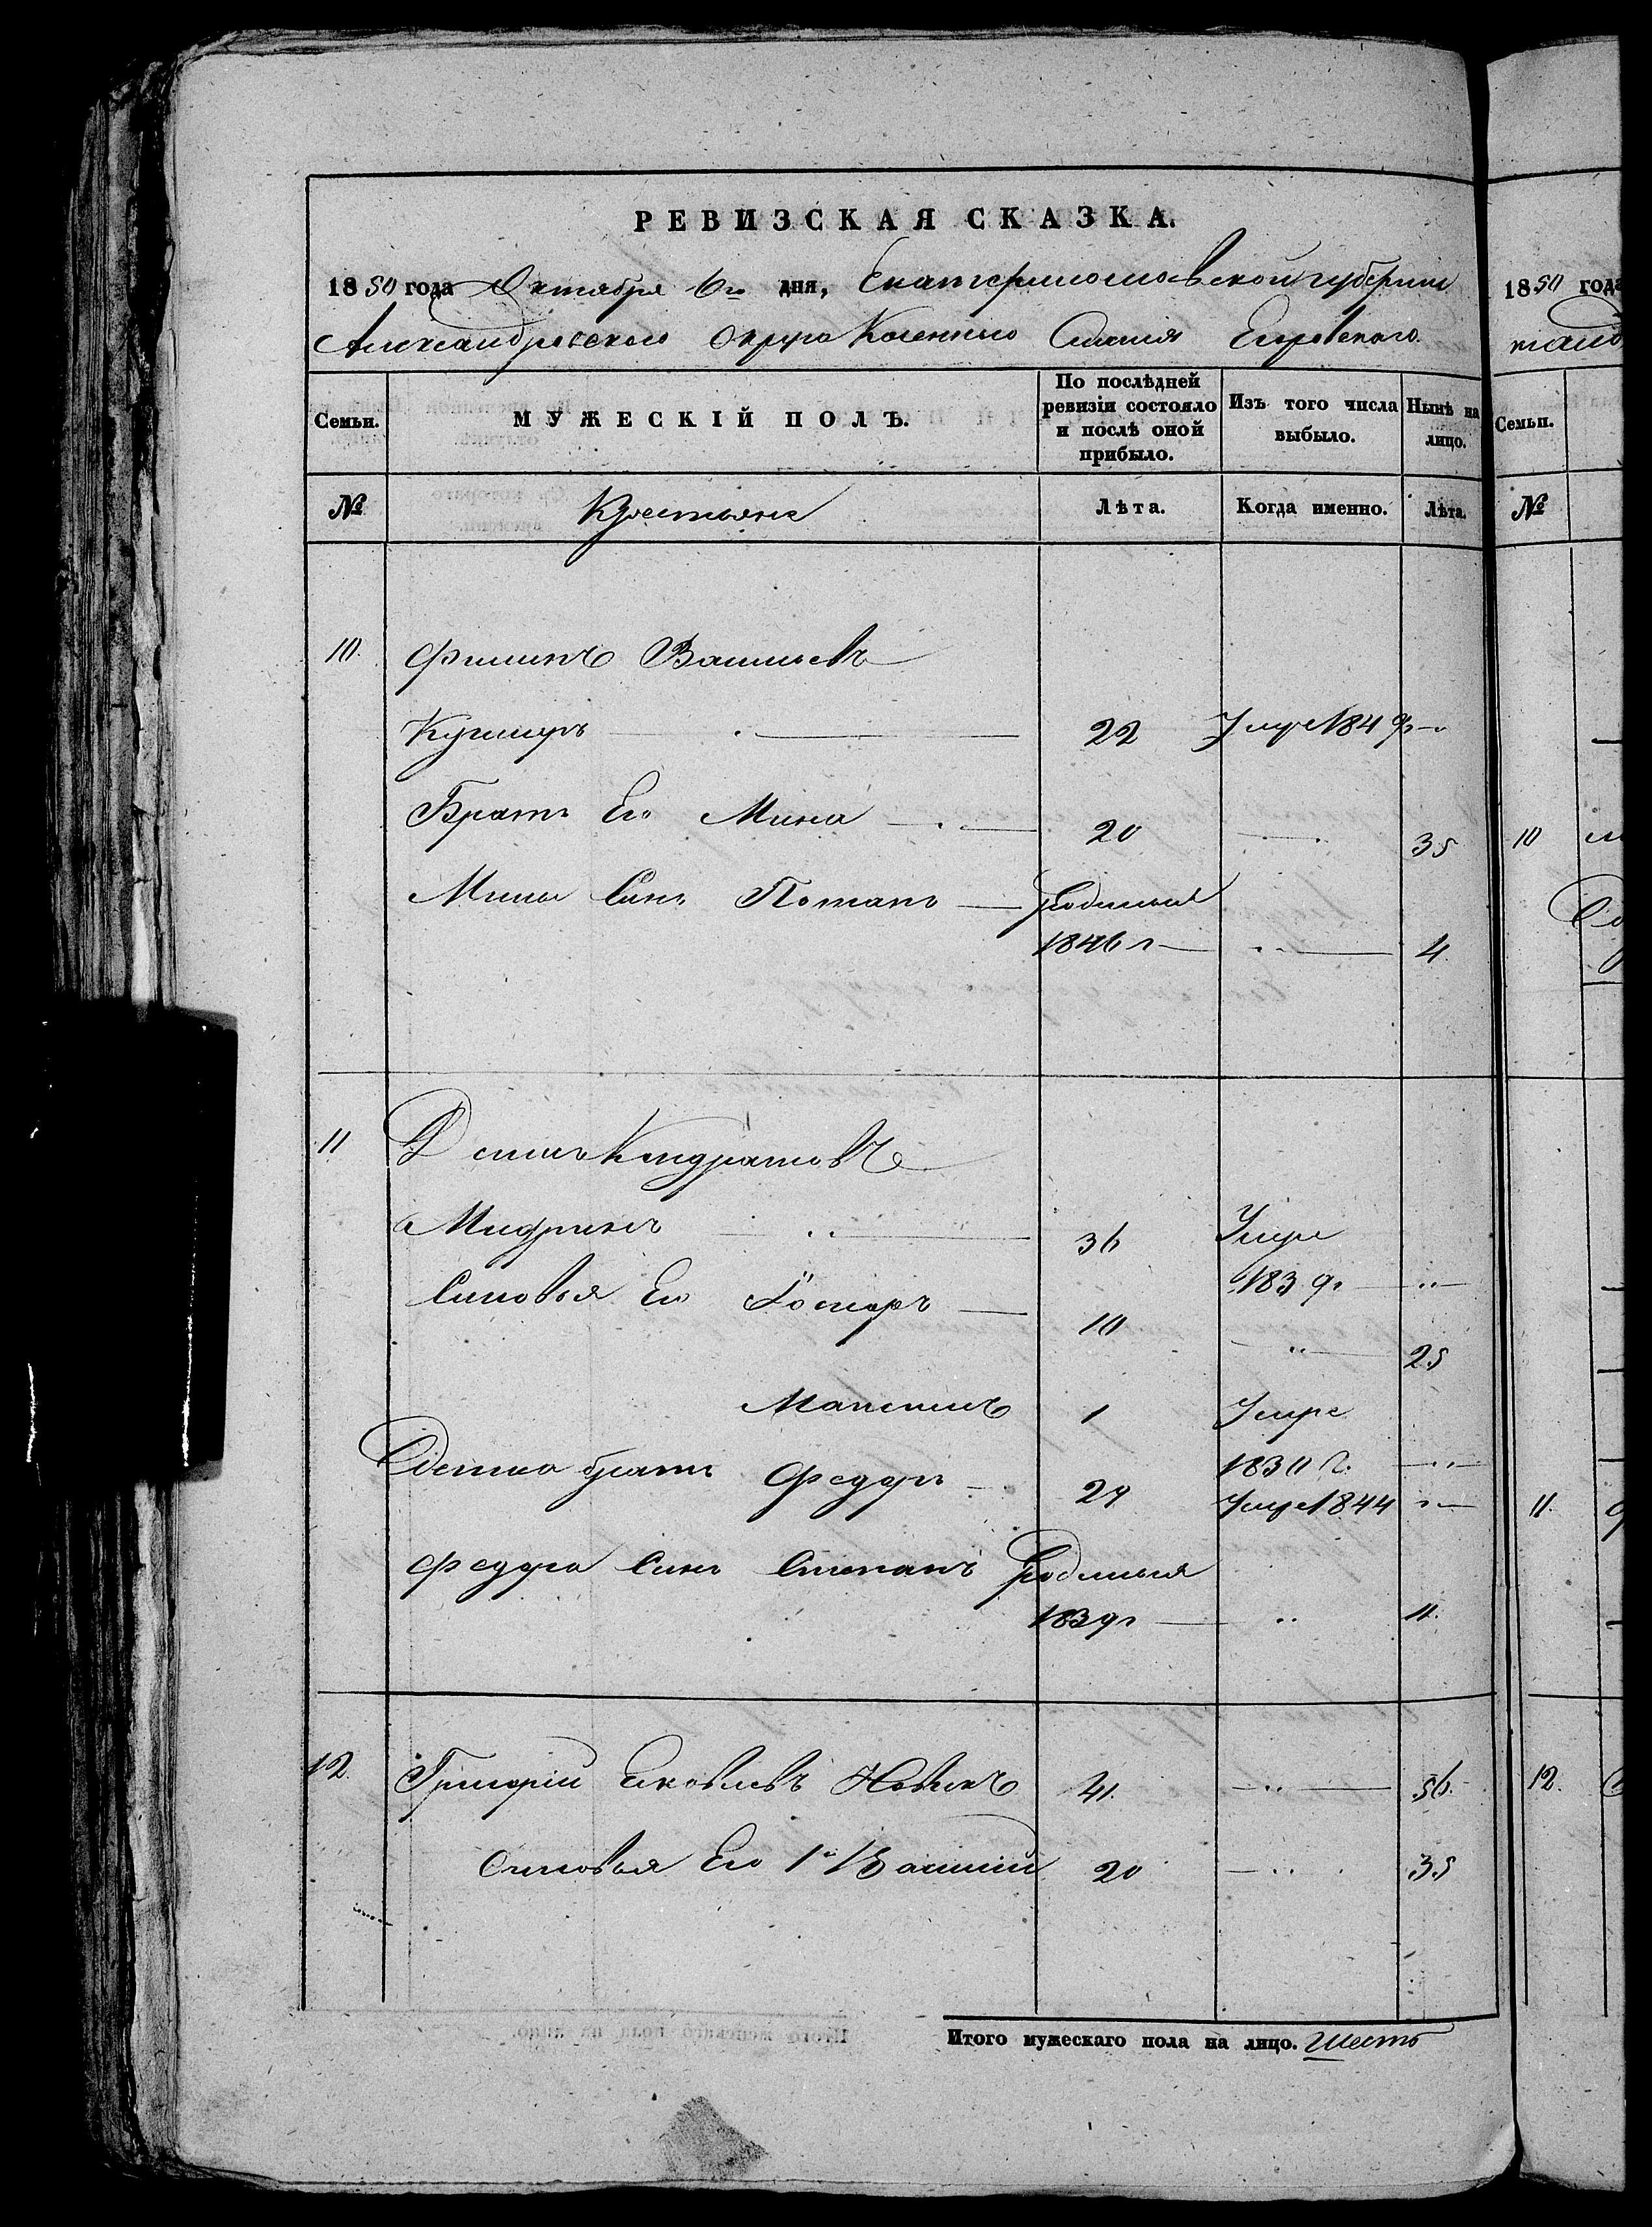 РЕВИЗСКАЯ СКАЗКА.
1850 года Октября 6го дня, Екатеринославской губернии
Александровского округа Казенного Селения Егоровского
Семьи. МУЖЕСКІЙ ПОЛЪ. По послѣдней ревизіи состояло и послѣ оной прибыло. Изъ того числа выбыло. Нынѣ на лицо.
№ Крестьяне Лѣта. Когда именно. Лѣта.
10. Филипъ Васильевъ
22 Умре 1849 г
Братъ Его Мина 20 35
Мины Сынъ Потапъ родился
1846 г 4
11 Кондратовъ
36 Умре
1839 г
Сыновья Его 10 25
Максимъ 1 Умре
1830 г.
братъ Федоръ 29 Умре 1844
Федора Сынъ Степанъ родился
1839 г 11.
12. Григорій Яковлевъ Новикъ 41. 56.
Сыновья Его 1й Василий 20 35
Итого мужескаго пола на лицо. Шесть
1850 года
Семьи.
№
10
11.
12.